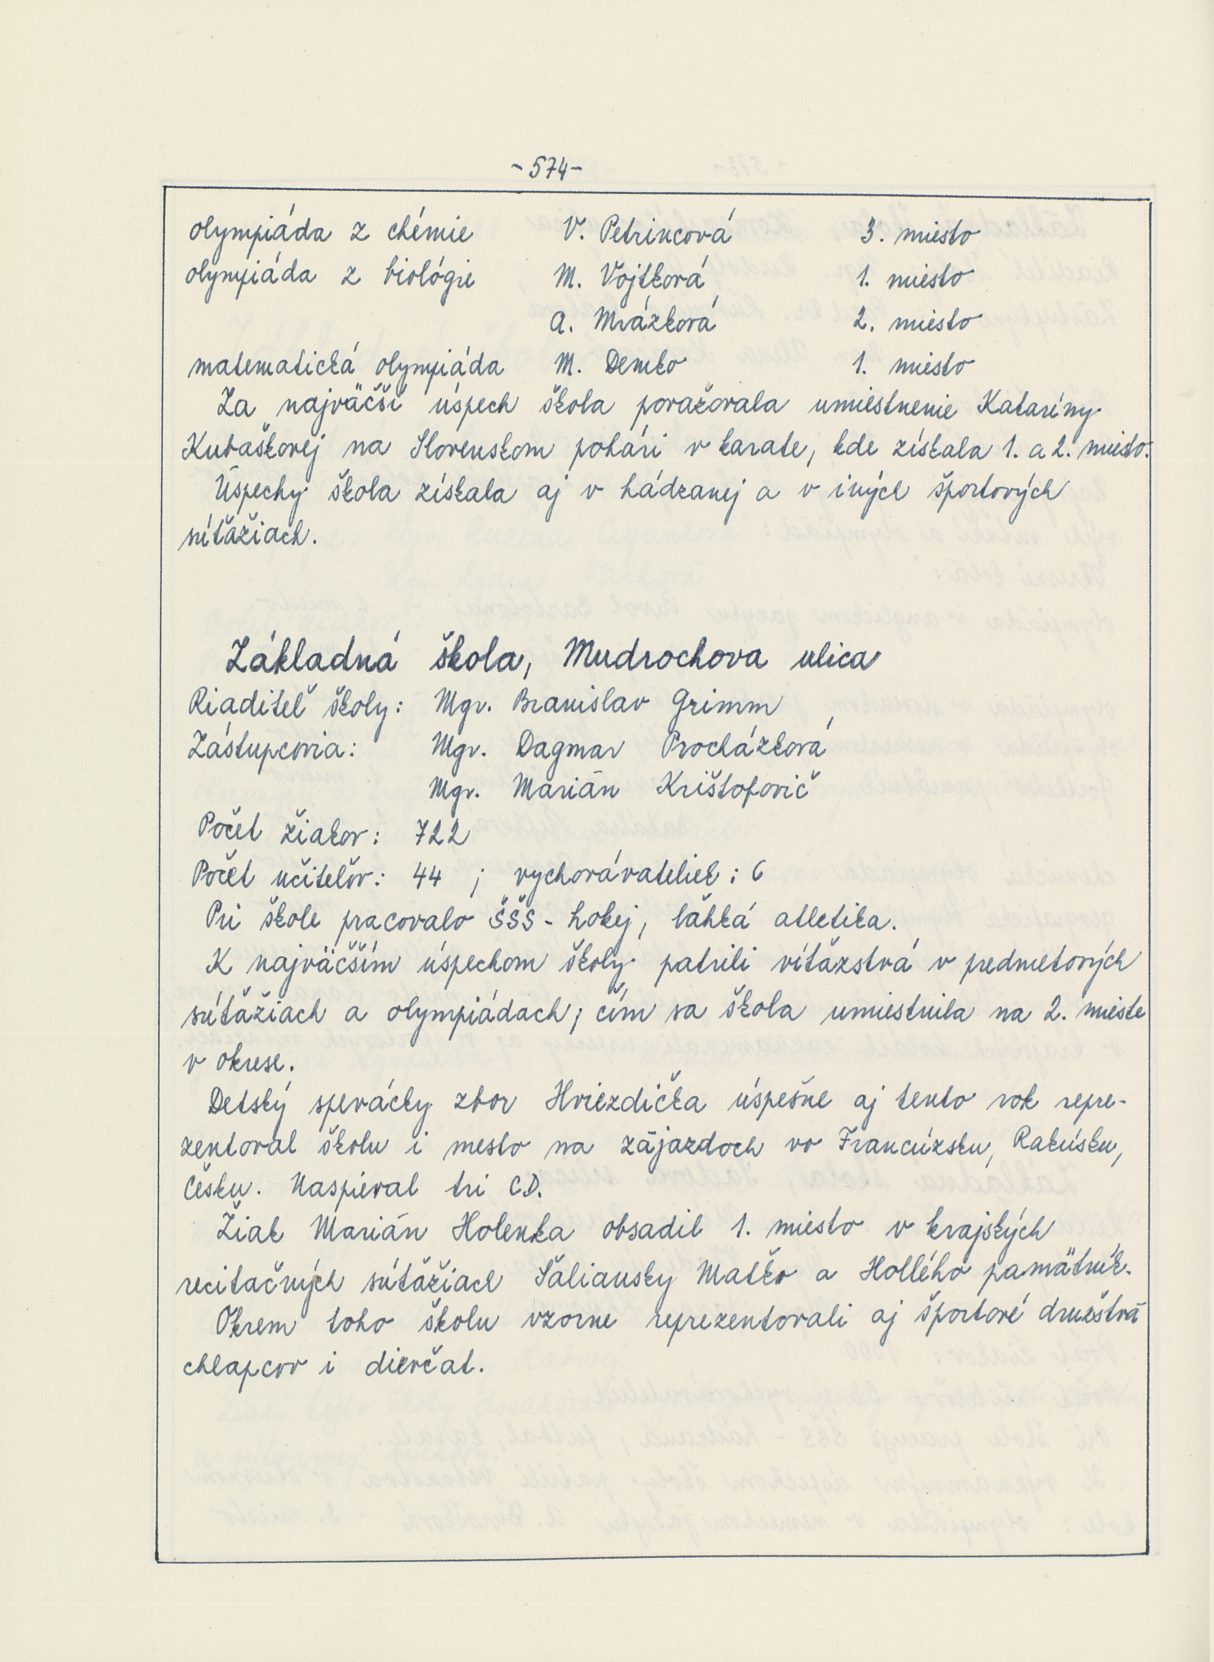 -574-
olympiáda z chémie V. Petrincová 3. miesto
olympiáda z biológie M. Vojtková 1. miesto
A. Mrázková 2. miesto
matematická olympiáda M. Demko 1. miesto
Za najväčší úspech škola považovala umiestnenie Kataríny
Kubaškovej na Slovenskom pohári v karate, kde získala 1. a 2. miesto.
Úspechy škola získala aj v hádzanej a v iných športových
súťažiach.
Základná škola, Mudrochova ulica
Riaditeľ školy: Mgr. Branislav Grimm
Zástupcovia: Mgr. Dagmar Procházková
Mgr. Marián Krištofovič
Počet žiakov: 722
Počet učiteľov: 44 ; vychovávateliek: 6
Pri škole pracovalo ŠŠS - hokej, ľahká atletika.
K najväčším úspechom školy patrili víťazstvá v predmetových
súťažiach a olympiádach; čím sa škola umiestnila na 2. mieste
v okrese.
Detský spevácky zbor Hviezdička úspešne aj tento rok repre-
zentoval školu i mesto na zájazdoch vo Francúzsku, Rakúsku,
Česku. Naspieval tri CD.
Žiak Marián Holenka obsadil 1. miesto v krajských
recitačných súťažiach Šaliansky Maťko a Hollého pamätník.
Okrem toho školu vzorne reprezentovali aj športové družstvá
chlapcov i dievčat.